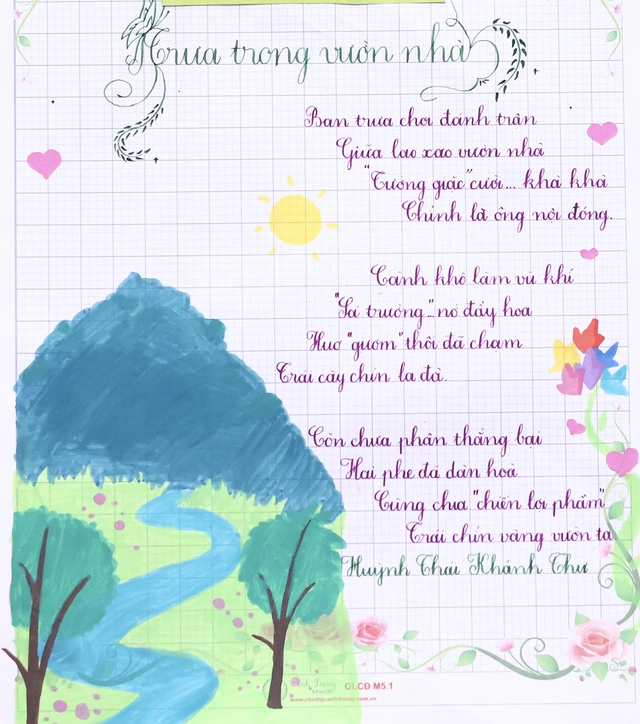 Trưa trong vườn nhà
Ban trưa chơi đánh trận
Giữa lao xao vườn nhà
"Tướng giặc" cười... khà khà
Chính là ông nội đóng.
Cành khô làm vũ khí
"Sa trường"... nở đầy hoa
Huơ "gươm" thôi đã chạm
Trái cây chín la đà.
Còn chưa phân thắng bại
Hai phe đã dàn hoà
Cùng chia "chiến lợi phẩm"
Trái chín vàng vườn ta
Huỳnh Thái Khánh Thư
GLCĐ M5.1